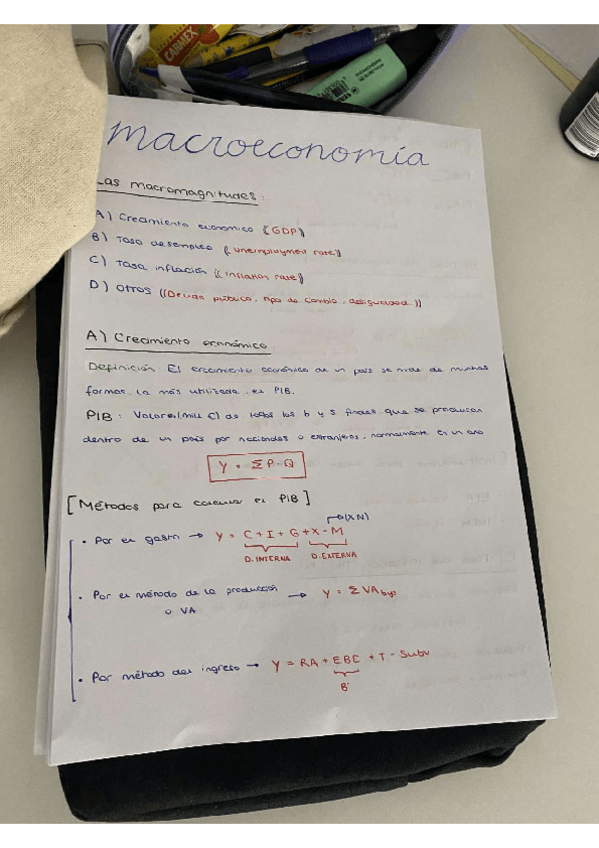 CARMEX
macroeconomía
Las macromagnitudes:
A) Crecimiento económico ((GDP))
B) Tasa desempleo ((unemployment rate))
C) Tasa inflación ((inflation rate))
D) Otros ((Deuda pública, tipo de cambio, desigualdad))
A) Crecimiento económico.
Definición: El crecimiento económico de un país se mide de muchas
formas. La más utilizada es PIB.
PIB: Valores(mill €) de todos los b y s finales que se producen
dentro de un país por nacionales o extranjeros, normalmente en un año
Y = ΣP·Q
[Métodos para calcular el PIB]
(XN)
• Por el gasto → Y = C + I + G + X - M
D. INTERNA D. EXTERNA
• Por el método de la producción → Y = ΣVA bys
o VA
• Por método del ingreso → Y = RA + EBE + T - Subv
Bº